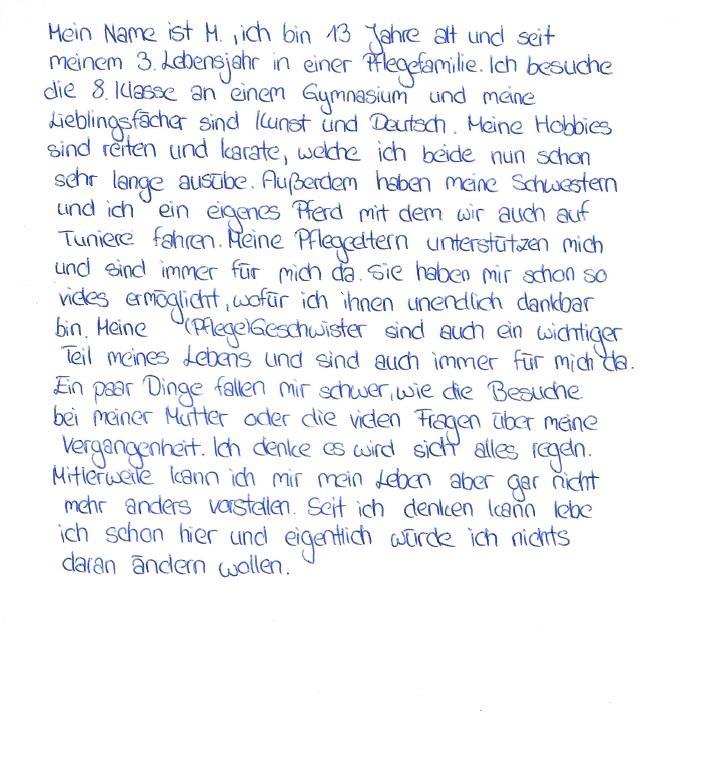 Mein Name ist M., ich bin 13 Jahre alt und seit
meinem 3. Lebensjahr in einer Pflegefamilie. Ich besuche
die 8. Klasse an einem Gymnasium und meine
Lieblingsfächer sind Kunst und Deutsch. Meine Hobbies
sind reiten und karate, welche ich beide nun schon
sehr lange ausübe. Außerdem haben meine Schwestern
und ich ein eigenes Pferd mit dem wir auch auf
Tuniere fahren. Meine Pflegeeltern unterstützen mich
und sind immer für mich da. Sie haben mir schon so
vieles ermöglicht, wofür ich ihnen unendlich dankbar
bin. Meine (Pflege)Geschwister sind auch ein wichtiger
Teil meines Lebens und sind auch immer für mich da.
Ein paar Dinge fallen mir schwer, wie die Besuche
bei meiner Mutter oder die vielen Fragen über meine
Vergangenheit. Ich denke es wird sich alles regeln.
Mitlerweile kann ich mir mein Leben aber gar nicht
mehr anders vorstellen. Seit ich denken kann lebe
ich schon hier und eigentlich würde ich nichts
daran ändern wollen.